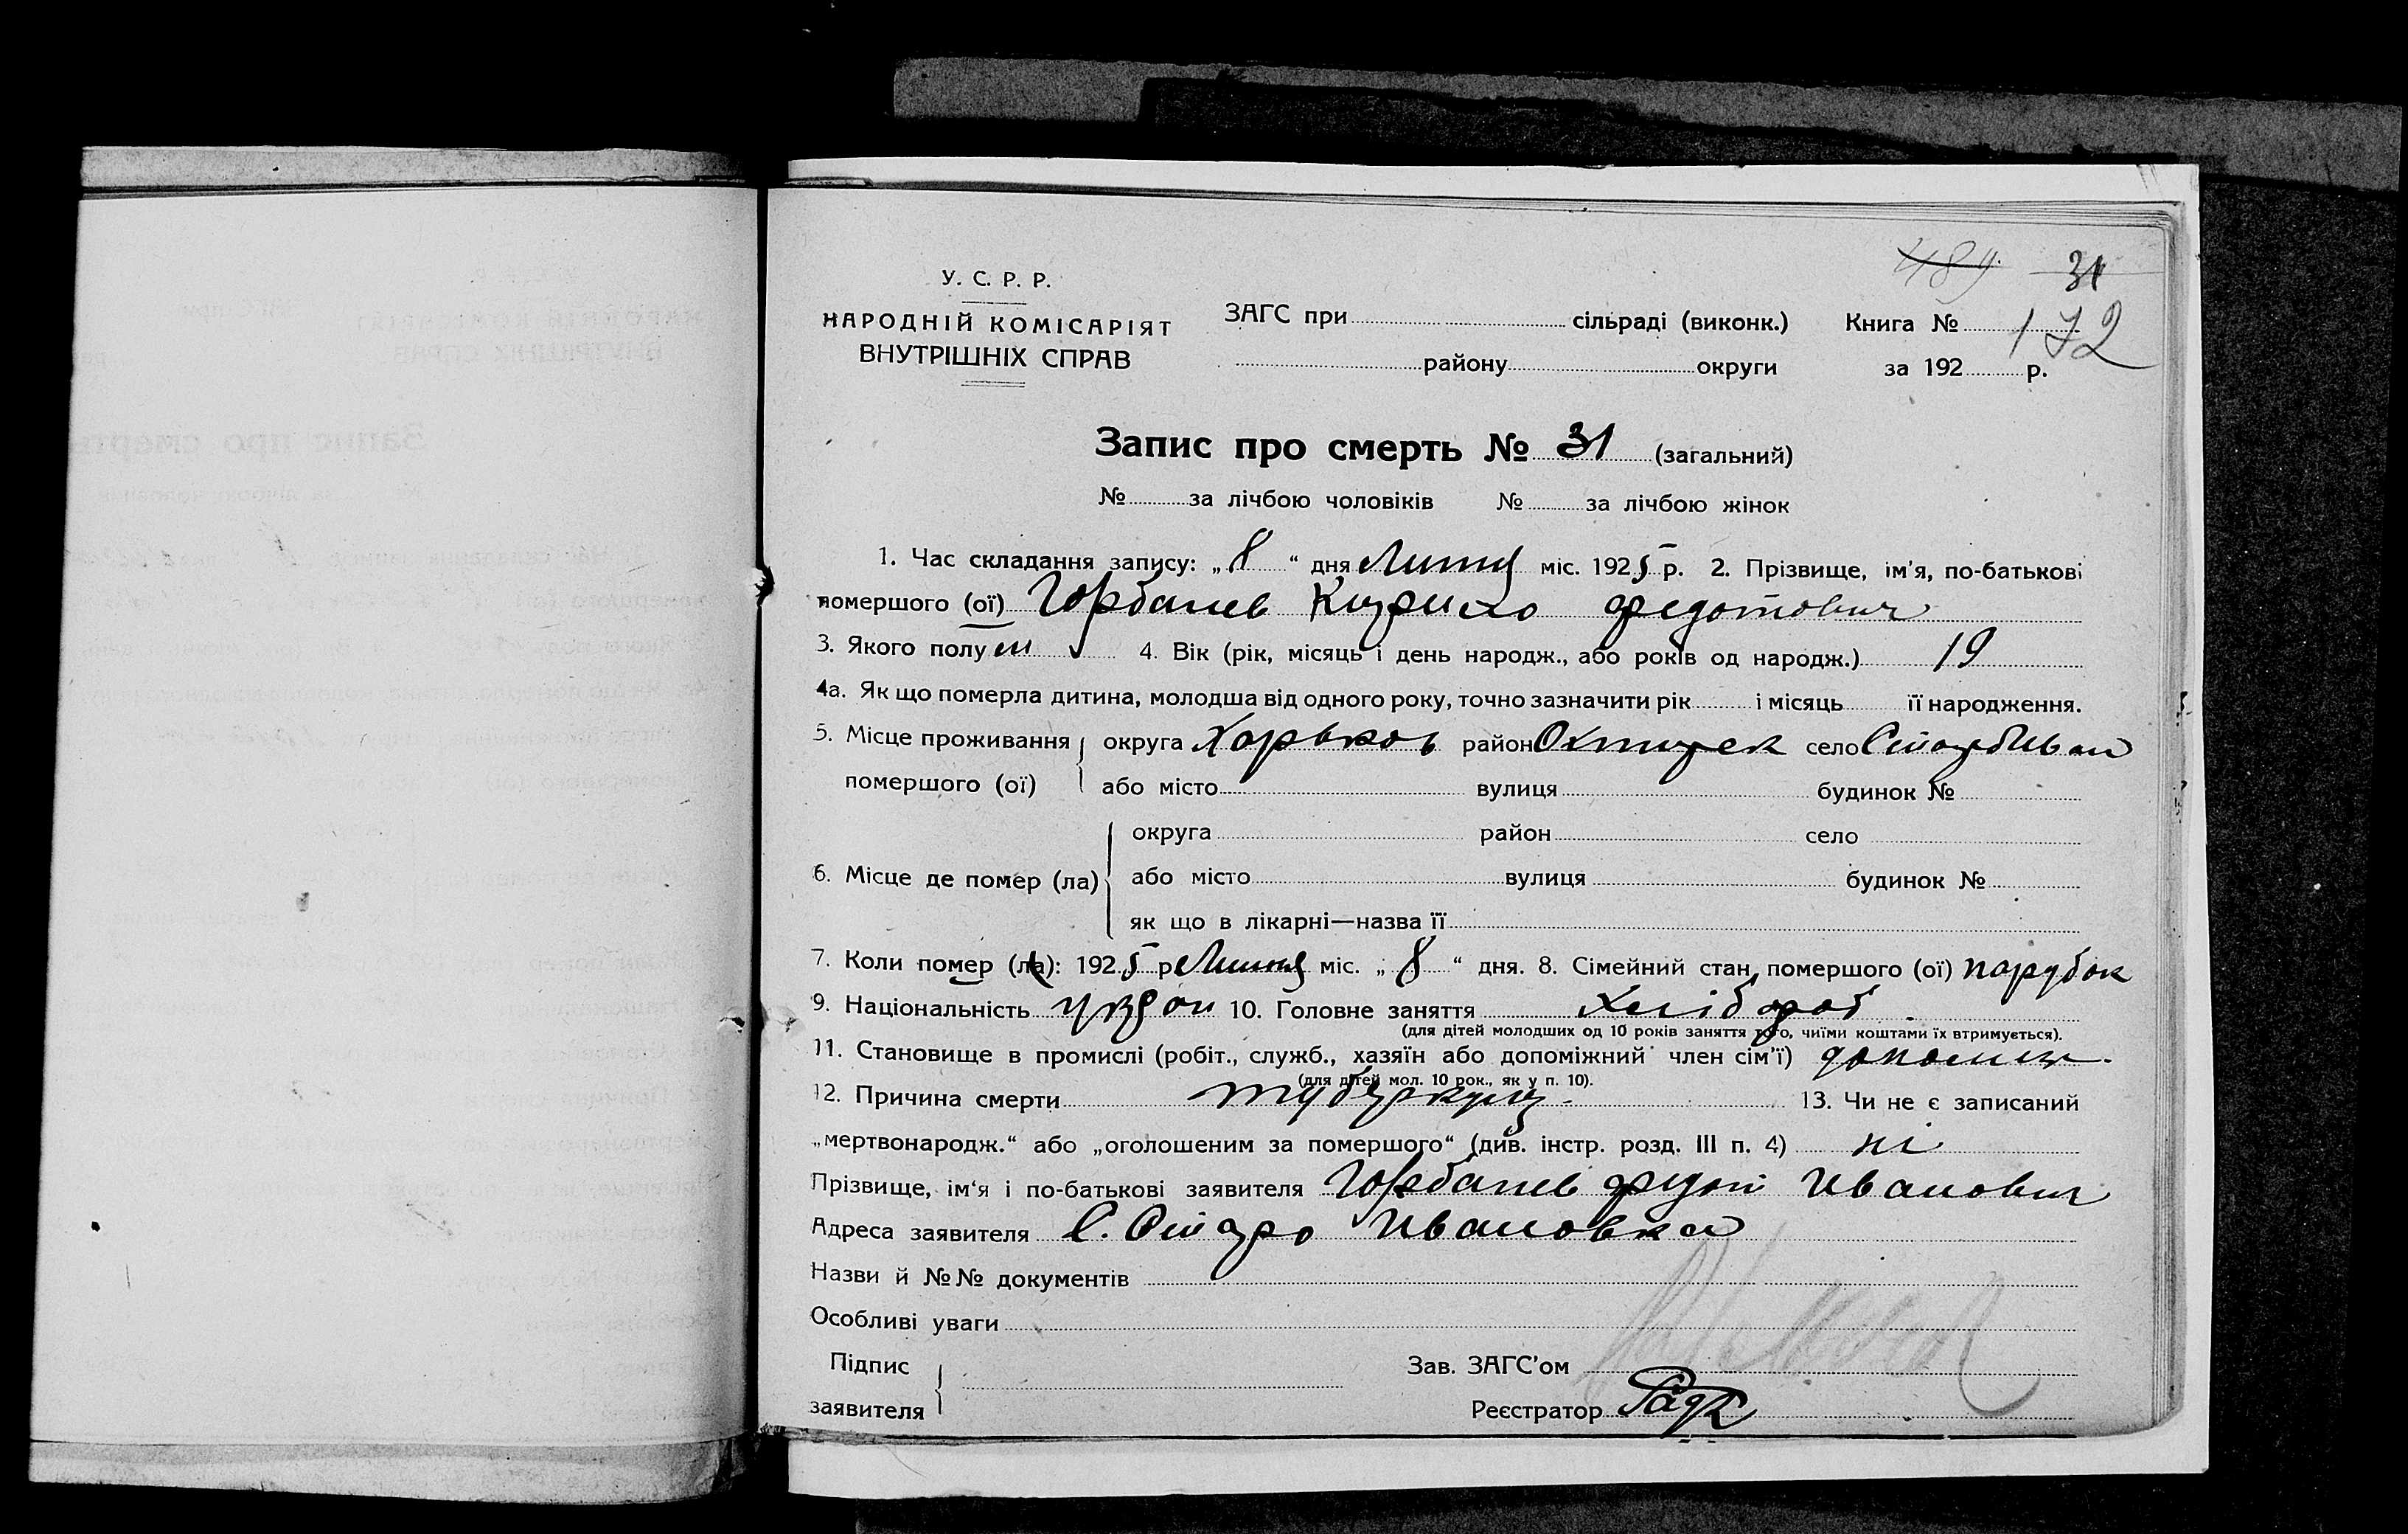 489 31
У. С. Р. Р.
НАРОДНІЙ КОМІСАРІЯТ
ВНУТРІШНІХ СПРАВ
ЗАГС при сільраді (виконк.)
району округи
Книга № 172
за 192 р.
Запис про смерть № 31 (загальний)
№ за лічбою чоловіків № за лічбою жінок
1. Час складання запису: „ 8 “ дня Липня міс. 1925 р. 2. Прізвище, ім'я, по-батькові
помершого (ої) Горбанев Кирило Федотович
3. Якого полу м 4. Вік (рік, місяць і день народж., або років од народж.) 19
4а. Як що померла дитина, молодша від одного року, точно зазначити рік і місяць її народження.
5. Місце проживання округа Харьков район Охтирек село Стар Иван
помершого (ої) або місто вулиця будинок №
округа район село
6. Місце де помер (ла) або місто вулиця будинок №
як що в лікарні—назва її
7. Коли помер (ла): 1925 р Липня міс. „ 8 “ дня. 8. Сімейний стан помершого (ої) парубок
9. Національність 10. Головне заняття хлібороб
(для дітей молодших од 10 років заняття того, чиїми коштами їх втримується).
11. Становище в промислі (робіт., служб., хазяїн або допоміжний член сім'ї)
(для дітей мол. 10 рок., як у п. 10).
12. Причина смерти туберкульз 13. Чи не є записаний
„мертвонародж.“ або „оголошеним за помершого“ (див. інстр. розд. III п. 4) ні
Прізвище, ім'я і по-батькові заявителя Горбанев Федот Иванович
Адреса заявителя С. Старо Ивановка
Назви й №№ документів
Особливі уваги
Підпис
заявителя
Зав. ЗАГС'ом
Реєстратор